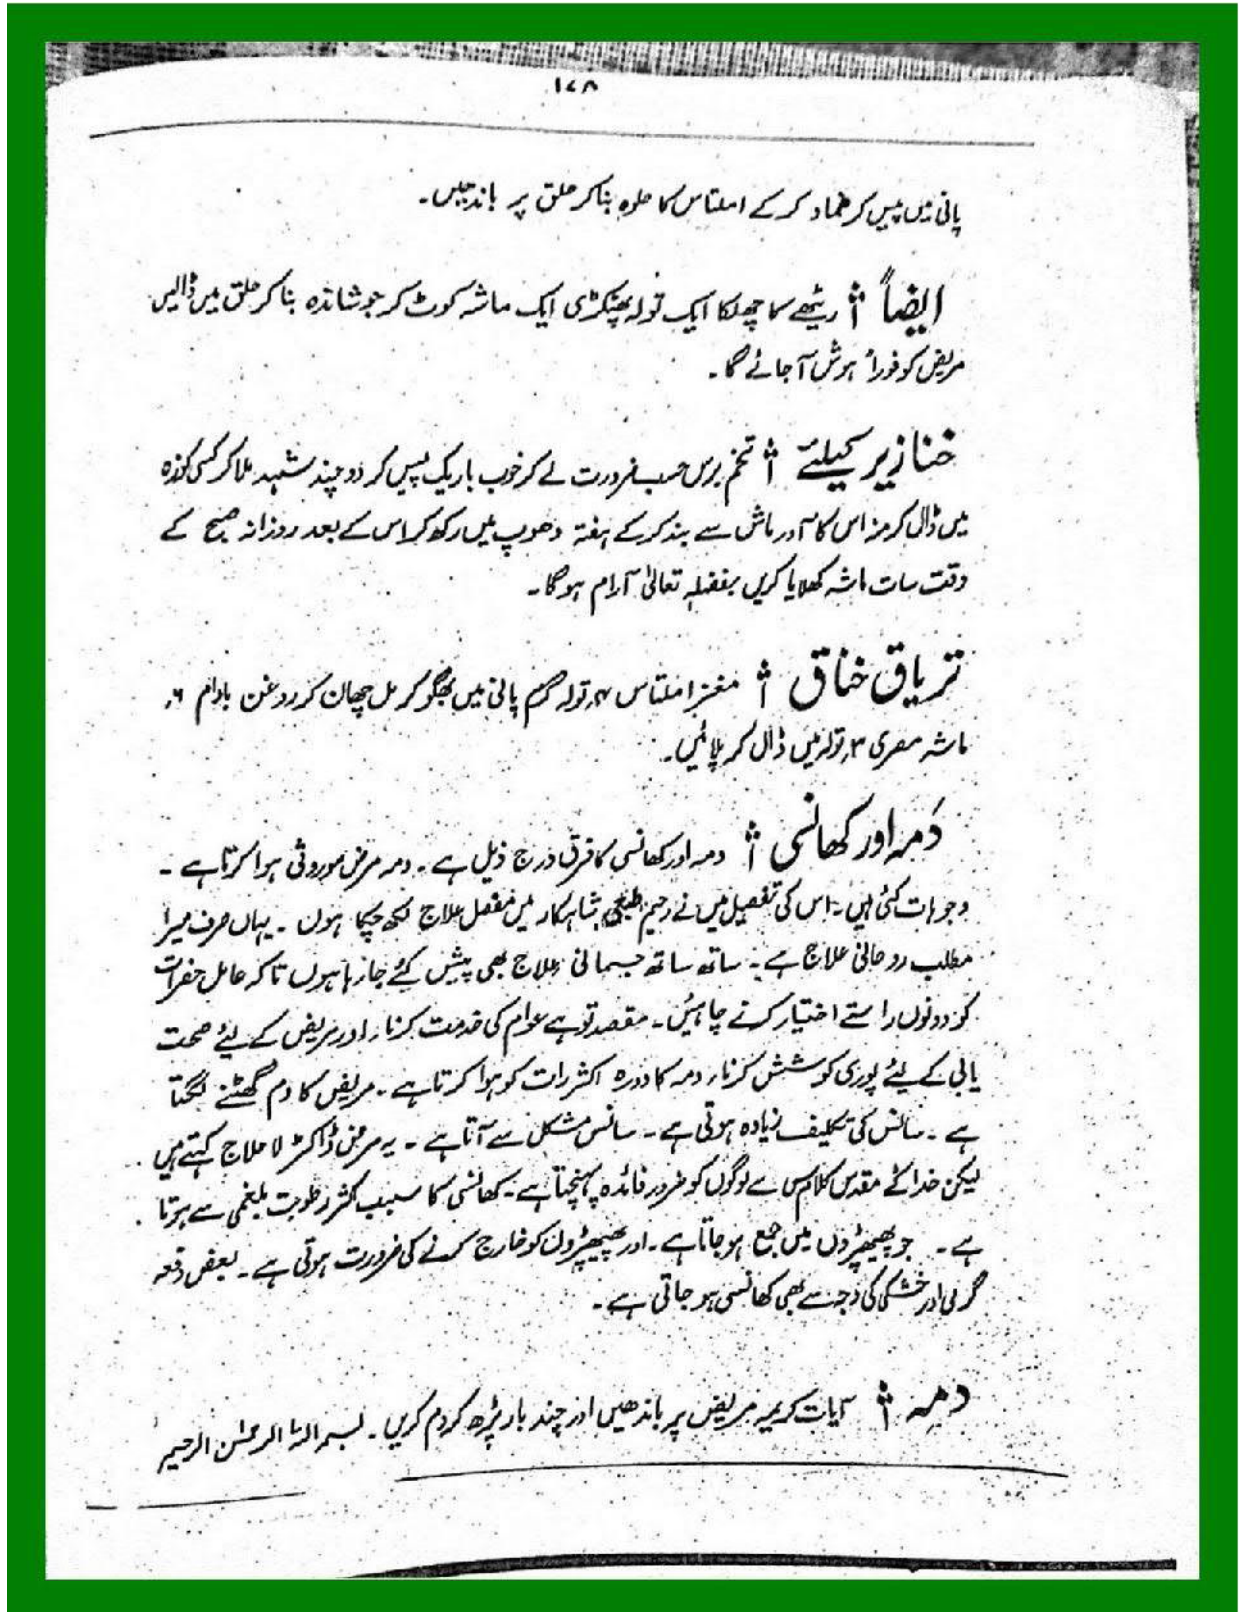 ۱۷۸
پانی میں پیس کر ضماد کر کے املتاس کا حلوہ بنا کر حلق پر باندھیں۔
ایضاً ریٹھے کا چھلکا ایک تولہ پھٹکڑی ایک ماشہ کوٹ کر جوشاندہ بنا کر حلق میں ڈالیں
مریض کو فوراً ہوش آجائے گا۔
خنازیر کیلئے تخم برس حسب ضرورت لے کر خوب باریک پیس کر دو چند شہد ملا کر کسی کوزہ
میں ڈال کر منہ اس کا آرد ماش سے بند کر کے ہفتہ دھوپ میں رکھ کر اس کے بعد روزانہ صبح کے
وقت سات ماشہ کھلایا کریں بفضلہ تعالیٰ آرام ہوگا۔
تریاق خناق مغز املتاس ۴ تولہ گرم پانی میں بھگو کر مل چھان کر روغن بادام ۶
ماشہ مصری ۳ تولہ میں ڈال کر پلائیں۔
دَمہ اور کھانسی دمہ اور کھانسی کا فرق درج ذیل ہے۔ دمہ مرض موروثی ہوا کرتا ہے۔
وجوہات کئی ہیں۔ اس کی تفصیل میں نے رحیم طبی شاہکار میں مفصل علاج لکھ چکا ہوں۔ یہاں صرف میرا
مطلب روحانی علاج ہے۔ ساتھ ساتھ جسمانی علاج بھی پیش کئے جا رہا ہوں تاکہ عامل حضرات
کو دونوں راستے اختیار کرنے چاہئیں۔ مقصد تو ہے عوام کی خدمت کرنا، اور مریض کے لیے صحت
یابی کے لیے پوری کوشش کرنا، دمہ کا دورہ اکثر رات کو ہوا کرتا ہے۔ مریض کا دم گھٹنے لگتا
ہے۔ سانس کی تکلیف زیادہ ہوتی ہے۔ سانس مشکل سے آتا ہے۔ یہ مرض ڈاکٹر لاعلاج کہتے ہیں
لیکن خدا کے مقدس کلام سے لوگوں کو ضرور فائدہ پہنچتا ہے۔ کھانسی کا سبب کثر رطوبت بلغمی سے ہوتا
ہے۔ جو پھیپھڑوں میں جمع ہو جاتا ہے۔ اور پھیپھڑوں کو خارج کرنے کی ضرورت ہوتی ہے۔ بعض دفعہ
گرمی اور خشکی کی وجہ سے بھی کھانسی ہو جاتی ہے۔
دمہ آیات کریمہ مریض پر باندھیں اور چند بار پڑھ کر دم کریں۔ بسم اللہ الرحمٰن الرحیم